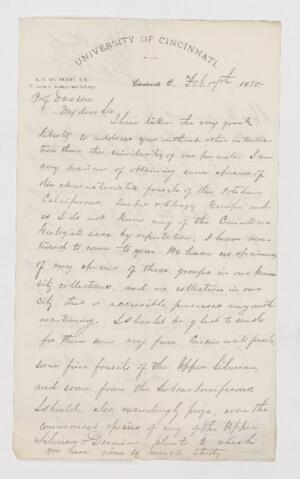 UNIVERSITY OF CINCINNATI.
Cincinnati O. Feb. 1880
Prof. Dawson
My dear Sir
I have taken the very great
liberty to address you without other introduc
tion than the similarity of our pursuits. I am
very desirous of obtaining some species of
the characteristic fossils of the Potsdam
Calciferous, Quebec & Chazy Groups and
as I do not know any of the Canadian
Geologists save by reputation, I have ven
tured to come to you. We have no specimens
of any species of these groups in our Univer
sity collections, and no collection in our
city, that is accessible, possesses any worth
mentioning. I should be glad to send
for them some very fine Cincinnati fossils
some fine fossils of the Upper Silurian,
and some from the Subcarboniferous.
I should, also, exceedingly prize, even the
commonest species of any of the Upper
Silurian & Devonian plants to which
you have given so much study.